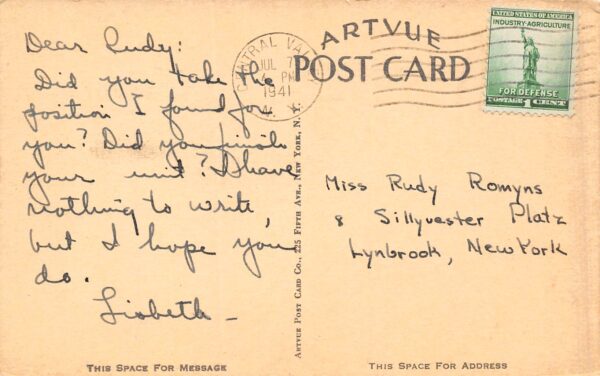 Dear Rudy:
Did you take the
position I found for
you? Did you finish
your unit? I have
nothing to write,
but I hope you
do.
Lisbeth -
THIS SPACE FOR MESSAGE
ARTVUE
POST CARD
ARTVUE POST CARD CO., 225 FIFTH AVE., NEW YORK, N. Y.
CENTRAL VAL
JUL 7
PM
1941
UNITED STATES OF AMERICA
INDUSTRY-AGRICULTURE
FOR DEFENSE
POSTAGE 1 CENT
Miss Rudy Romyns
8 Sillyvester Platz
Lynbrook, New York
THIS SPACE FOR ADDRESS